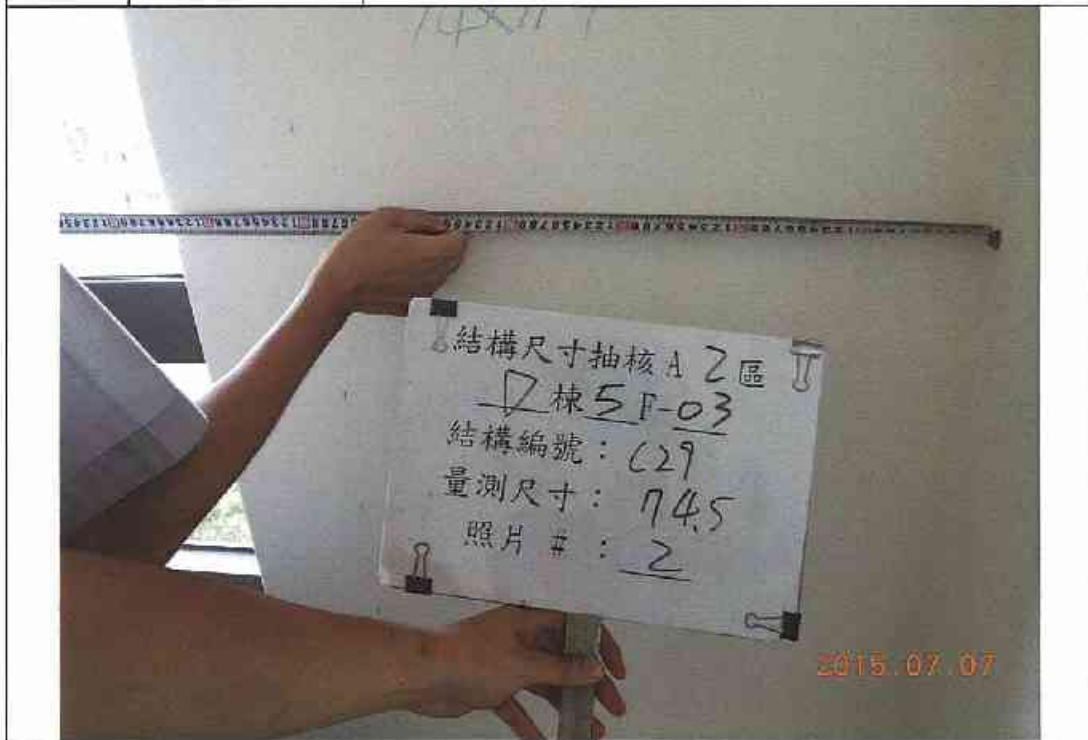 結構尺寸抽核A 2區
D棟5F-03
結構編號：C29
量測尺寸：74.5
照片 #：2
2015.07.07